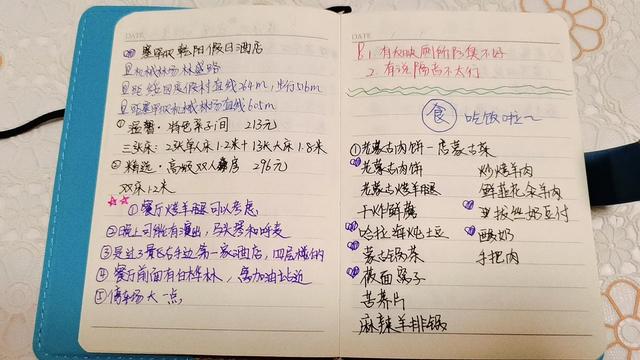 塞罕坝骄阳假日酒店
机械林场林盛路
距
直线264m,步行516m
距塞罕坝机械林场直线605m
①温馨·特色亲子间 213元
三张床:2张单人床1.2米+13张大床1.8米
②精选·高级双人房 296元
双床1.2米
①餐厅烤羊腿可以考虑
②晚上可能有演出,马头琴和呼麦
第一家酒店,四层楼的
④餐厅前面有白桦林,离加油站近
⑤停车场大一点
DATE
B1.有反映厕所隔臭不好
2.有说隔音不太行
食 吃饭啦~
①老蒙古肉饼-店蒙古菜
老蒙古肉饼 炒烤羊肉
老蒙古烤羊腿 鲜韭花汆羊肉
干炸鲜蘑 拔丝奶豆付
哈拉海炖土豆 酸奶
蒙古锅茶 手把肉
莜面窝子
苦荞片
麻辣羊排锅